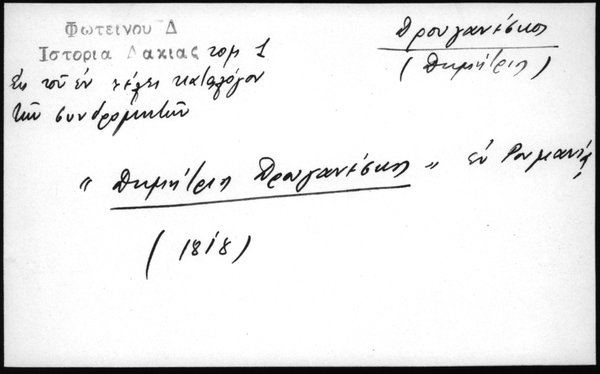 Φωτεινου Δ
Ιστορια Δακιας τομ 1
Εκ τοῦ ἐν τέλει καταλόγου
τῶν συνδρομητῶν
Δρουγανέσκος
(Δημήτριος)
" Δημήτριος Δρουγανέσκος " ἐν Ρουμανίᾳ
(1818)